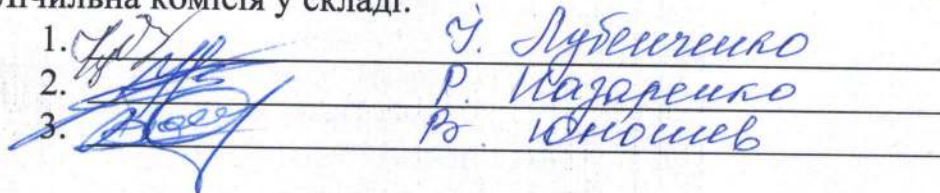 Лічильна комісія у складі:
1. У. Лубенченко
2. Р. Назаренко
3. В. Юношев